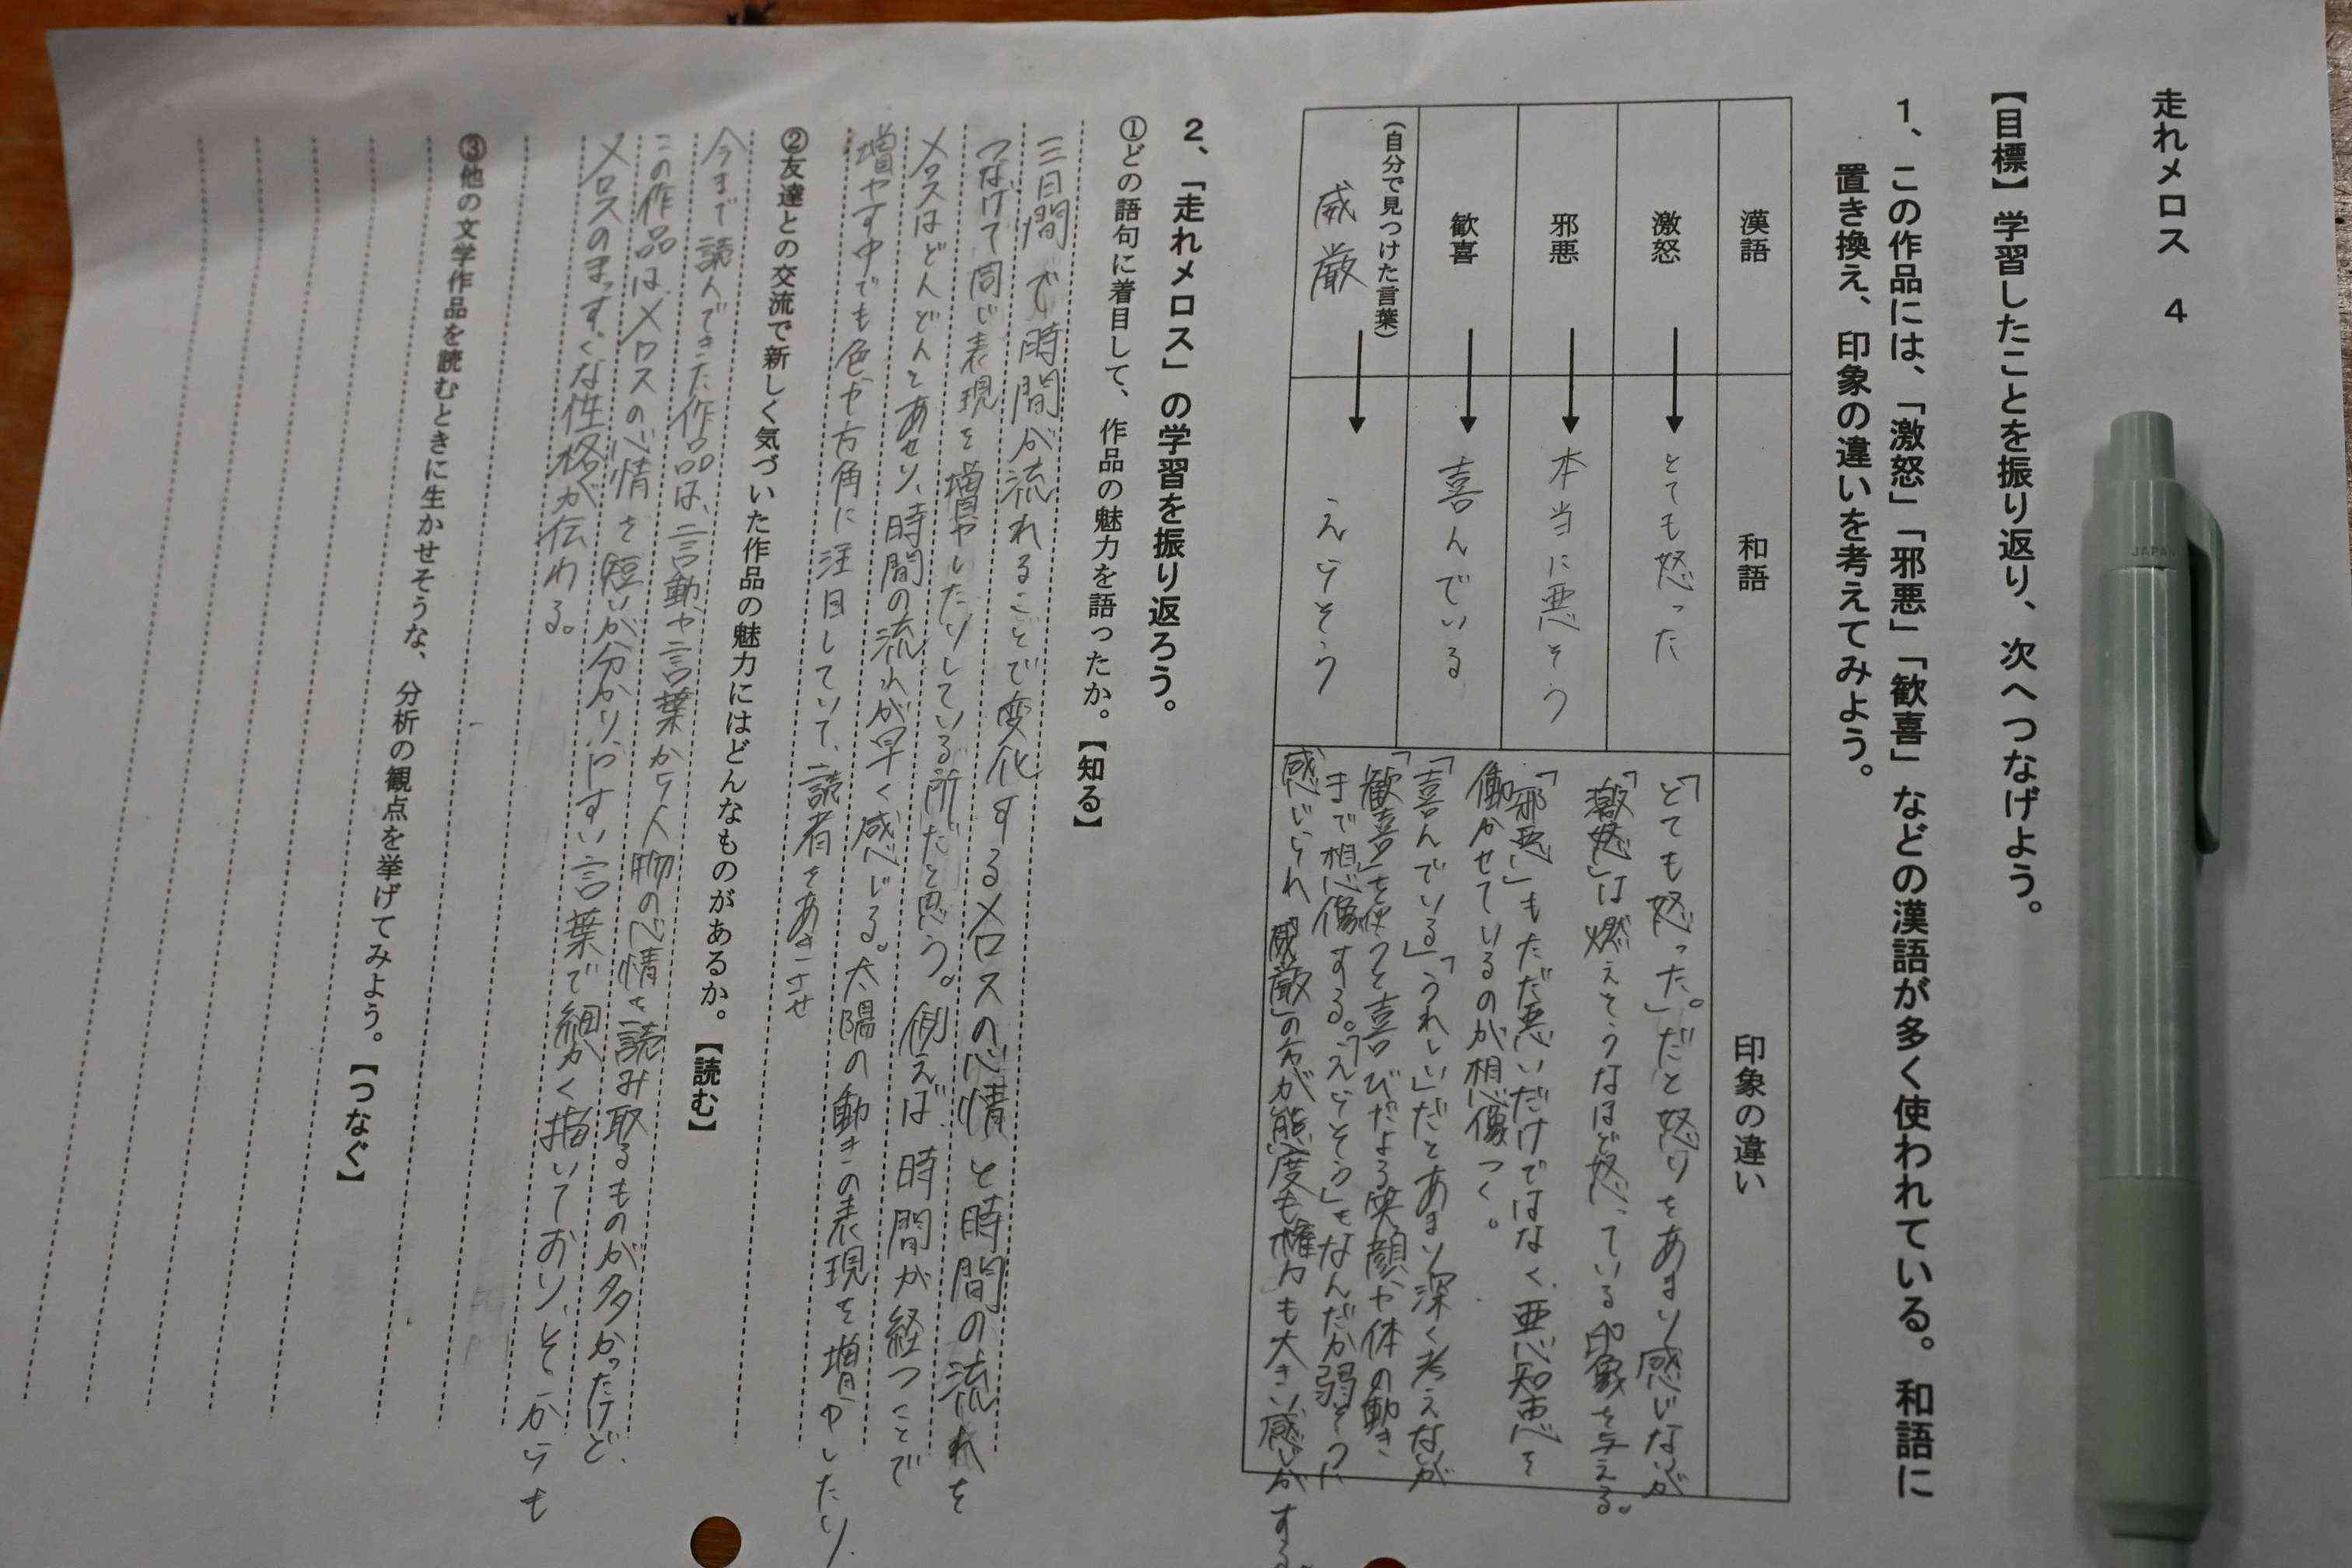 走れメロス 4
【目標】学習したことを振り返り、次へつなげよう。
1、この作品には、「激怒」「邪悪」「歓喜」などの漢語が多く使われている。和語に
置き換え、印象の違いを考えてみよう。
漢語
和語
印象の違い
激怒
とても怒った
「とても怒った。」だと怒りをあまり感じないが
「激怒」は燃えそうなほど怒っている印象を与える。
邪悪
本当に悪そう
「邪悪」もただ悪いだけではなく、悪知恵を
働かせているのが想像つく。
歓喜
喜んでいる
「喜んでいる」「うれしい」だとあまり深く考えないが
「歓喜」を使うと喜びだよる笑顔や体の動き
まで想像する。
(自分で見つけた言葉)
威厳
えらそう
「えらそう」もなんだか弱そうに
感じられ 威厳」の方が態度も権力も大きい感じがする。
2、「走れメロス」の学習を振り返ろう。
①どの語句に着目して、作品の魅力を語ったか。【知る】
三日間で時間が流れることで変化するメロスの心情と時間の流れを
つなげて同じ表現を増やしたりしている所だと思う。例えば、時間が経つことで
メロスはどんどんあせり、時間の流れが早く感じる。太陽の動きの表現を増やしたり、
増やす中でも色や方角に注目していて、読者をあきさせ
②友達との交流で新しく気づいた作品の魅力にはどんなものがあるか。【読む】
今まで読んできた作品は、言動や言葉から人物の心情を読み取るものが多かったけど、
この作品はメロスの心情を短いが分かりやすい言葉で細かく描いており、そこからも
メロスのまっすぐな性格が伝わる。
③他の文学作品を読むときに生かせそうな、分析の観点を挙げてみよう。【つなぐ】
JAPAN